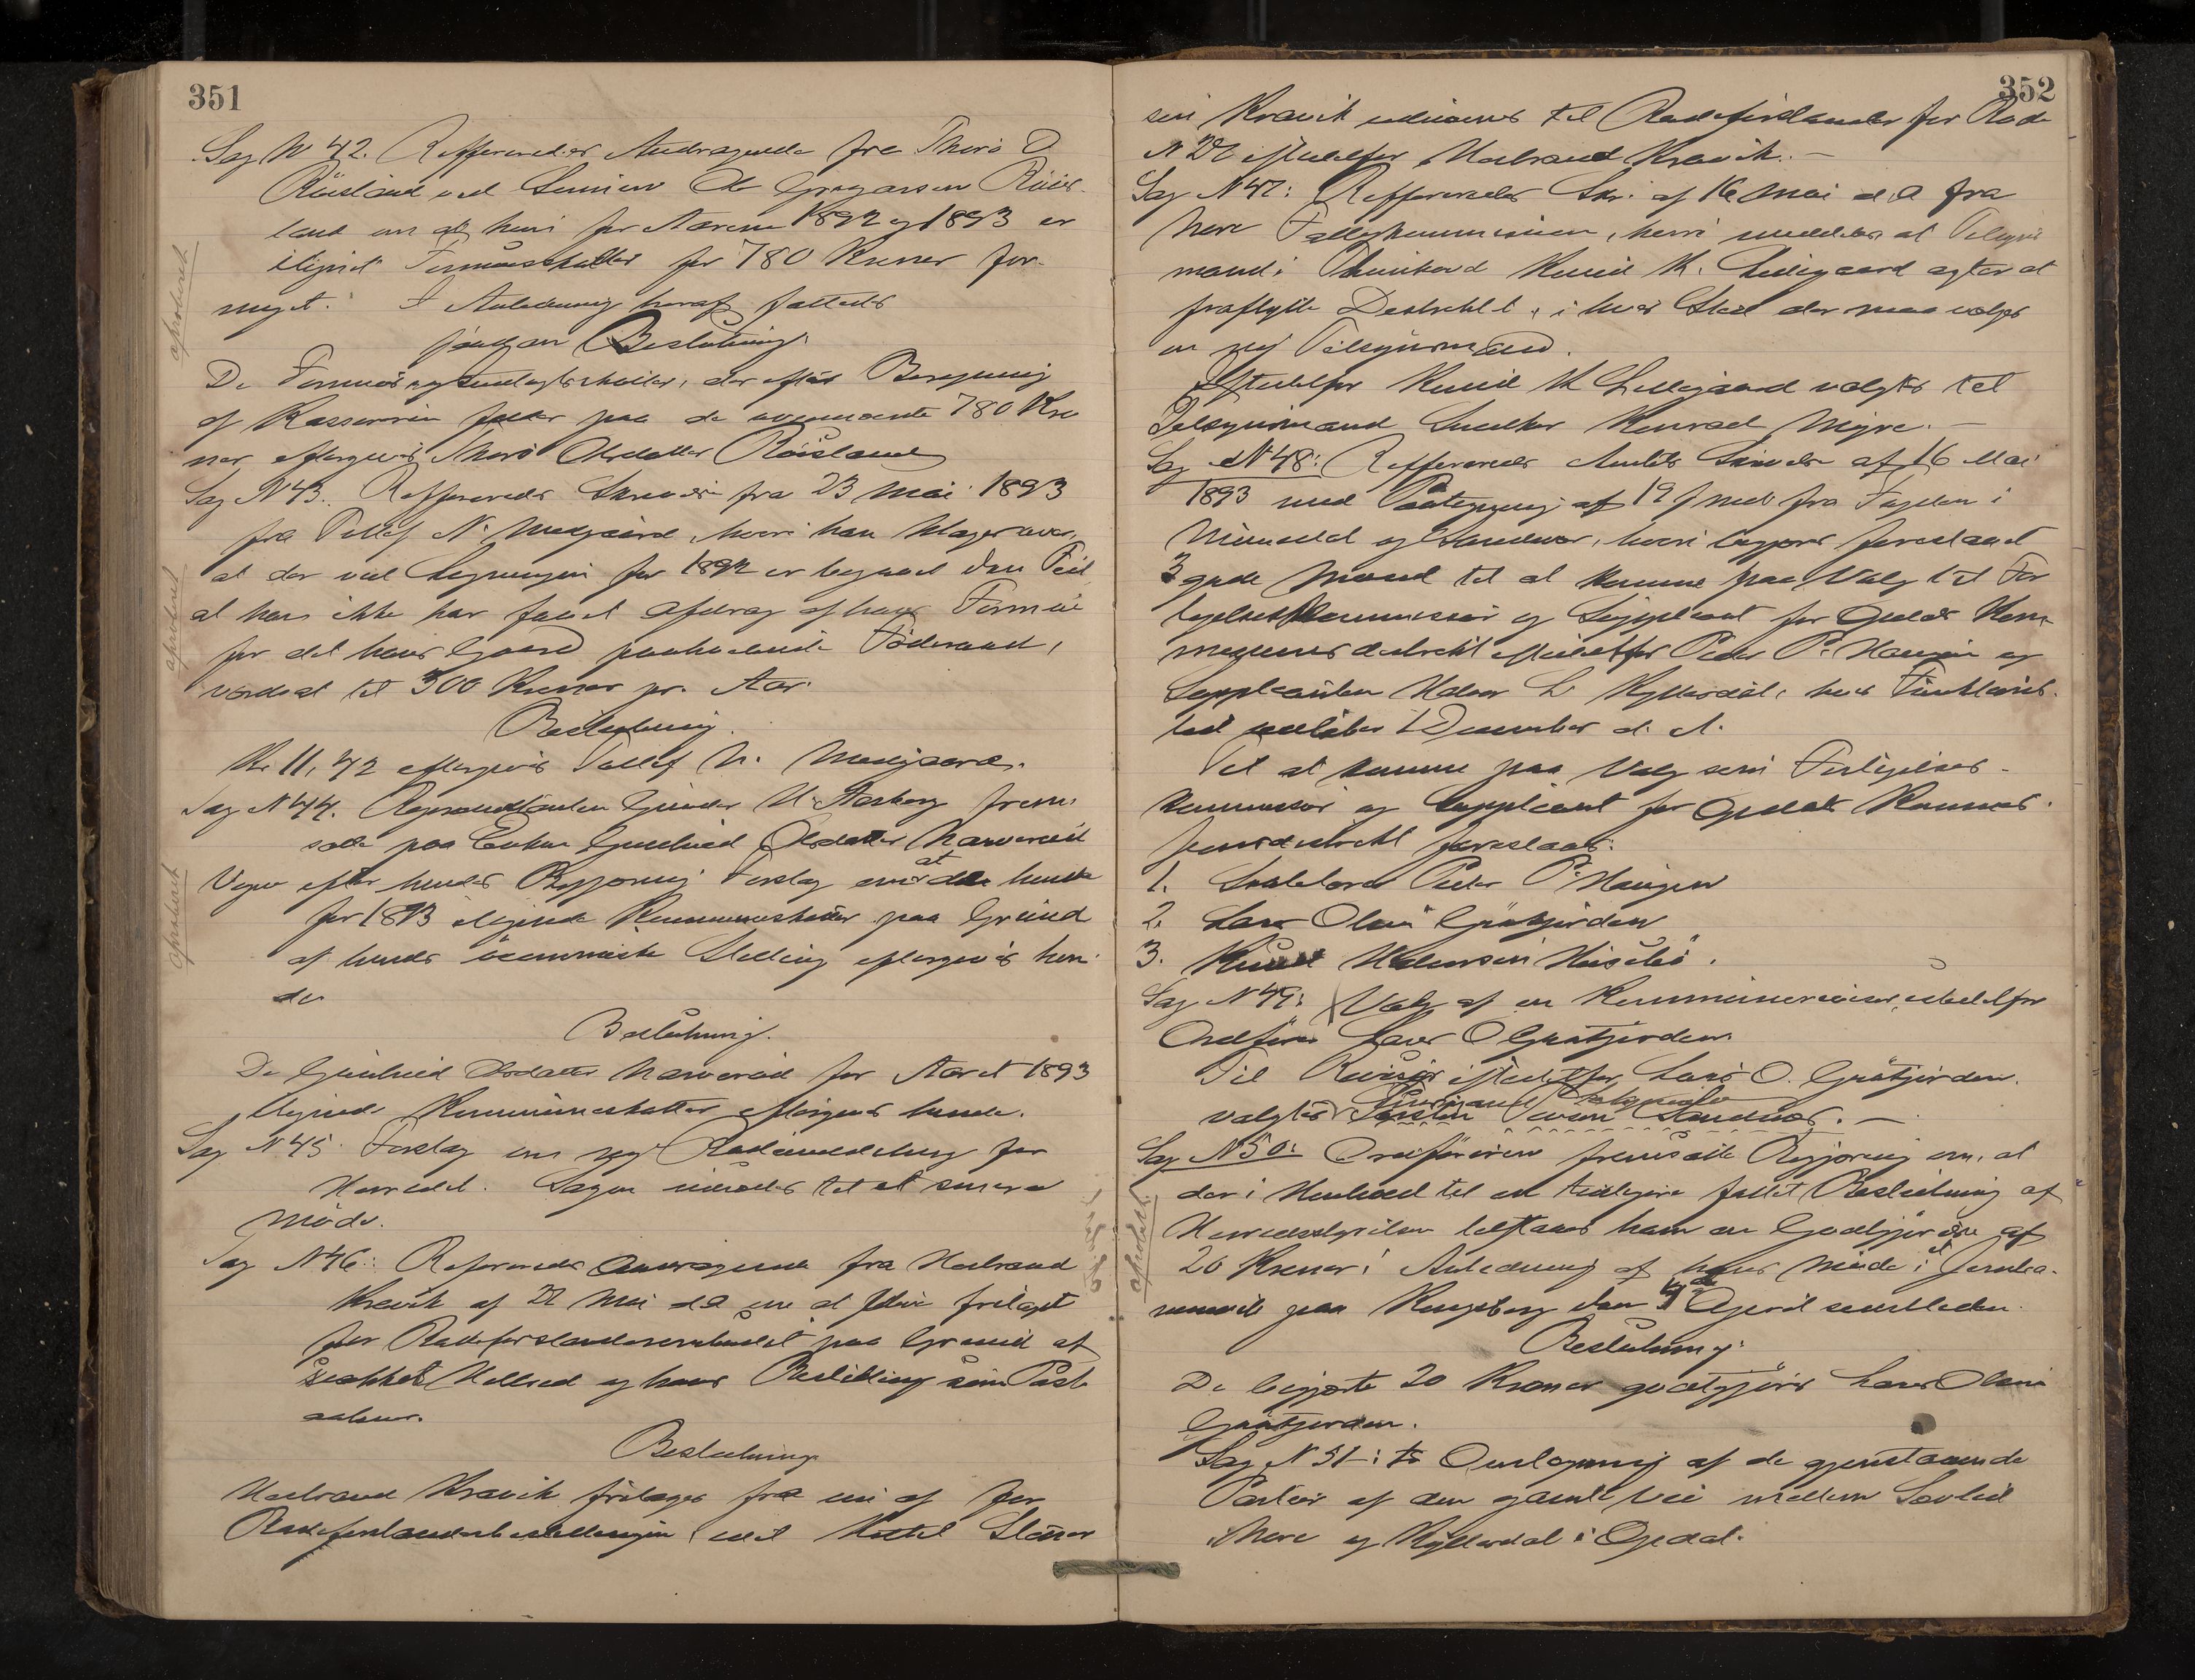 351
Sag N 42. Refereredes Andragende fra Thoro O
Röisland ved Sønnen Ole Gregarsen Röis-
land om at hun for Aarene 1892 og 1893 er
ilignet Formueskatter for 780 Kroner for-
meget. I Anledning heraf fattedes
saadan Beslutning.
De Formues skatter, der efter Beregning
af Kassereren falder paa de ovennævnte 780 Kro
ner eftergives Thoro Olsdatter Röisland
Sag N 43. Refereredes Skrivelse fra 23 Mai 1893
fra Tollef N. Medgaard, hvori han klager over,
at der ved Ligningen for 1892 er begaaet den Feil,
at han ikke har faaet Afdrag af hans Formue
for det hans Gaard paahvilende Föderaad,
værdsat til 300 Kroner pr. Aar.
Beslutning.
Kr 11,42 eftergives Tollef N. Medgaard.
Sag N 44. Repræsentanten Gunder H. Aasberg frem-
satte paa Enken Gunhild Olsdatter Narverud
Vegne efter hendes Begjæring Forslag om at de hende
for 1893 ilignede Kommuneskatter paa Grund
af hendes öconomiske Stilling eftergives hen-
de
Beslutning.
De Gunhild Olsdatter Narverud for Aaret 1893
ilignede Kommuneskatter eftergives hende.
Sag N 45. Forslag om ny Rodeinddeling for
Herredet. Sagen udsættes til et senere
Møde.
Sag N 46: Refereredes Andragende fra Herbrand
Kravik af 22 Mai d.a om at blive fritaget
for Rodeforstanderombudet paa Grund af
svækket Helbred og hans Bestilling som Post
aabner.
Beslutning
Herbrand Kravik fritages fra nu af for
Rodeforstanderbestillingen, ved Kittel
aprobert
aprobert
aprobert
352
Kravik udnævnes til Rodeforstander for Rode
N 22 istedetfor Herbrand Kravik. —
Sag N 47: Refereredes Skr. af 16 Mai d.a fra
Nore Fattigkommission, hvori meddeles at Tilsyns
mand: Knud K. Lillegaard agter at
fraflytte Distriktet, i hvis Sted der maa vælges
en ny Tilsynsmand.
Istedetfor Knud K Lillegaard valgtes til
Tilsynsmand Snedker Konrad Myre. —
Sag N 48: Refereredes Amtets Skrivelse af 16 Mai
1893 med Paategning af 19 s. md. fra Fogden i
Numedal og Sandsvær, hvori begjæres foreslaaet
3 gode Mænd til at komme paa Valg til For
ligelseskommissær og Suppleant for Opdals Kom-
missionsdistrikt istedetfor Peder P. Haugen og
Suppleanten Halvor L Kyllesdal, hvis Funktions-
tid udløber 1 December d. A.
Til at komme paa Valg som Forligelses-
kommissær og Suppleant for Opdals Kommis-
sionsdistrikt foreslaaes:
1. Peder P. Haugen
2. Lars Olsen Gråtfjorden
3. Knud Halvorsen
Sag N 49: Valg af en Kommunerevisor istedetfor
Ordfører Lars O Gråtfjorden
Til Revisor istedetfor Lars O. Gråtfjorden.
valgtes —
Sag N 50: Ordføreren fremsatte Begjæring om, at
der i Henhold til en tidligere fattet Beslutning af
Herredsstyrelsen tilstaaes ham en Godtgjørelse af
20 Kroner i Anledning af hans Møde i et Jernba-
nemøde paa Kongsberg den April sidstleden.
Beslutning
De begjærte 20 Kroner godtgjøres Lars Olsen
Gråtfjorden.
Sag N 51: Omlægning af de gjenstaaende
Partier af den gamle Vei mellem
i Nore og Kyllesdal i Opdal.
aprobert